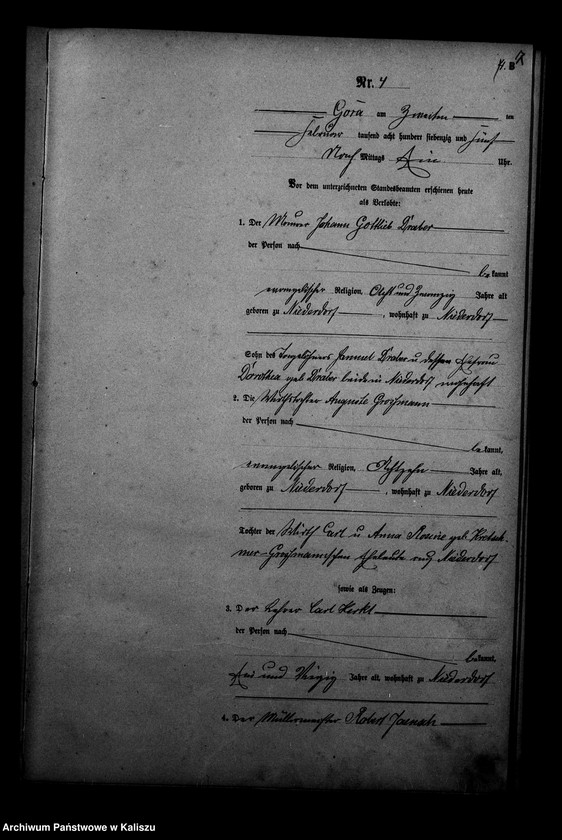 Nr. 4
Gora am Zweiten ten
Februar tausend acht hundert siebenzig und fünf
Nach Mittags Uhr.
Vor dem unterzeichneten Standesbeamten erschienen heute
als Verlobte:
1. Der Maurer Johann Gottlieb
der Person nach
bekannt
evangelischer Religion, Acht und Zwanzig Jahre alt
geboren zu Niederdorf, wohnhaft zu Niederdorf
Sohn des Tagelöhners Samuel u dessen Ehefrau
Dorothea geb beide in Niederdorf wohnhaft
2. Die Wirthstochter Auguste Großmann
der Person nach
bekannt,
evangelischer Religion, Achtzehn Jahre alt,
geboren zu Niederdorf, wohnhaft zu Niederdorf
Tochter der Wirth Carl u Anna Rosine geb.
Großmannschen Eheleute aus Niederdorf
sowie als Zeugen:
3. Der Lehrer Carl
der Person nach
bekannt,
und Vierzig Jahre alt, wohnhaft zu Niederdorf
4. Der Müllermeister Robert
Archiwum Państwowe w Kaliszu